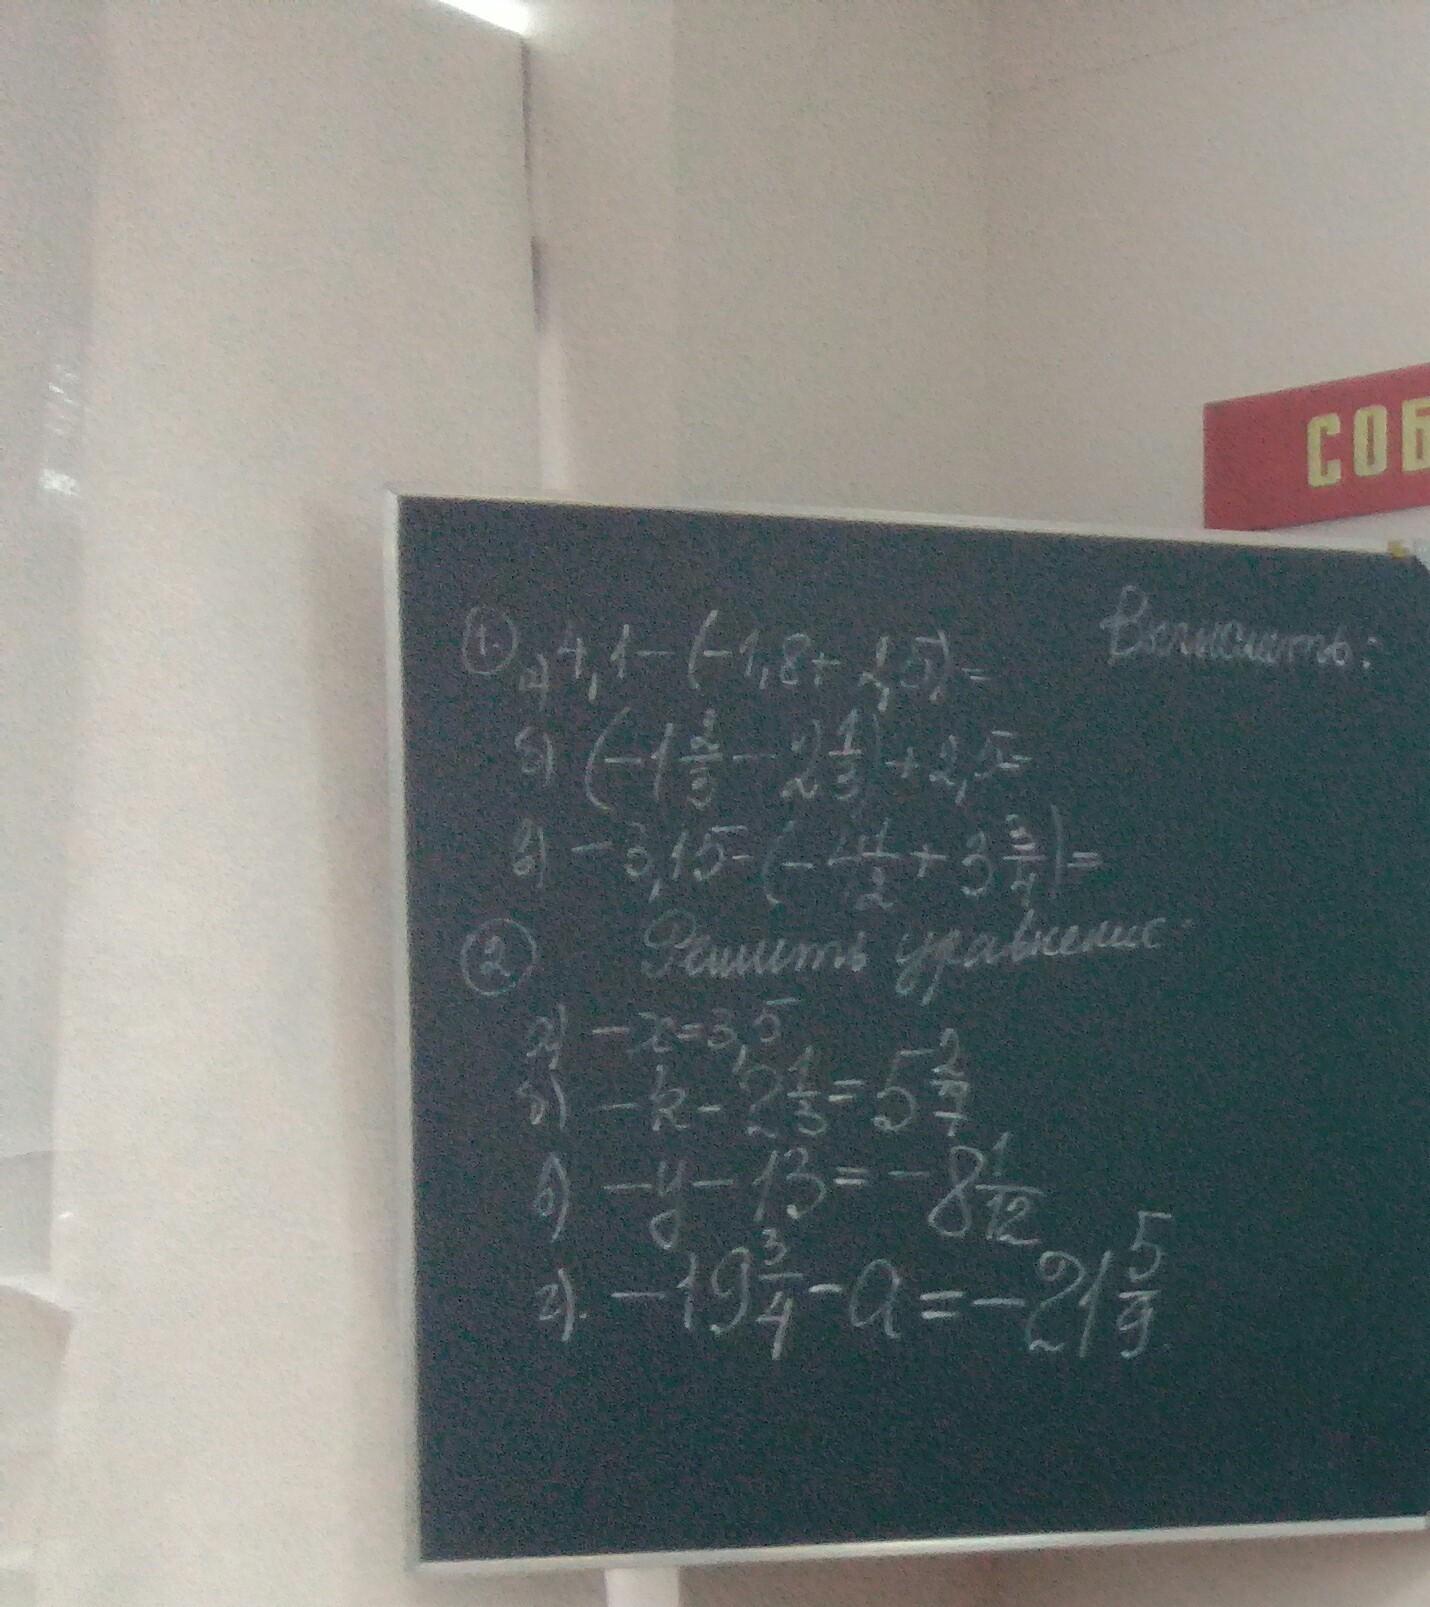 СОБ
Вычислить:
1. а) 4,1 - (-1,8 + 2,5) =
б) (-1 2/3 - 2 1/3) + 2,5 =
в) -3,15 - (-4 1/2 + 3 3/4) =
2 Решить уравнение
а) -x = 3,5
б) -k - 2 1/3 = 5 2/7
в) -y - 13 = -8 1/12
г). -19 3/4 - a = -21 5/9